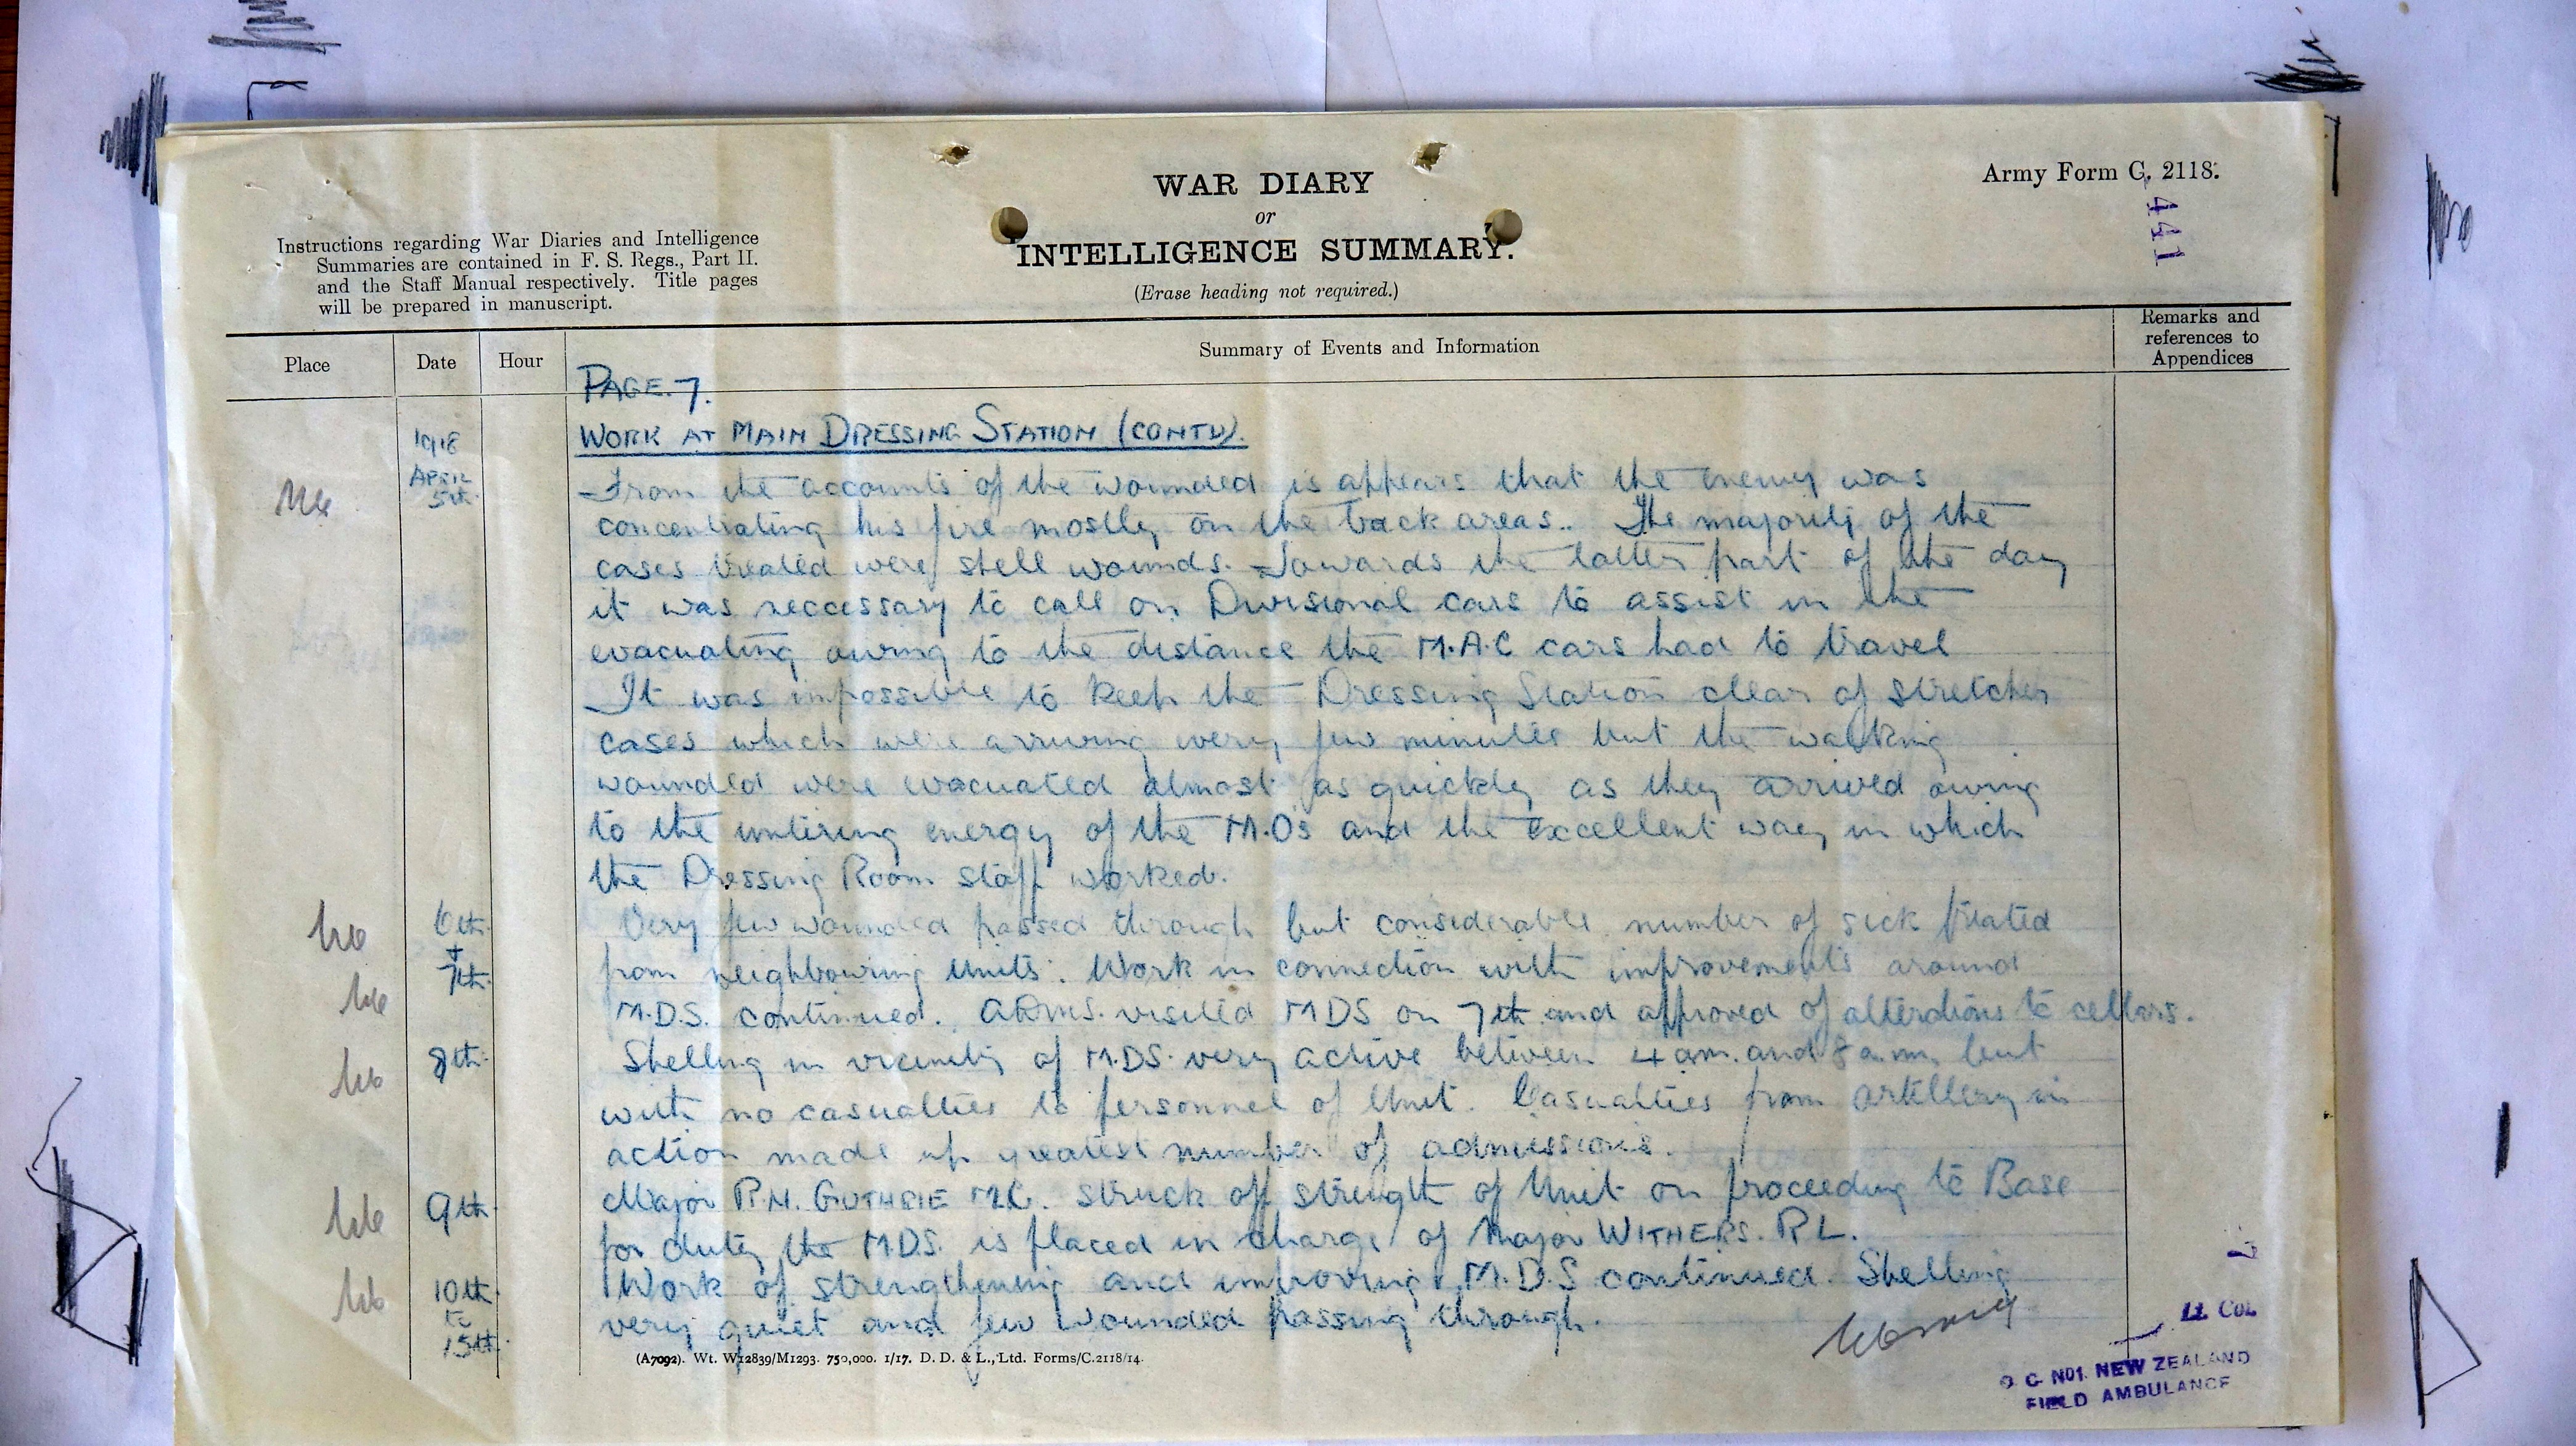 WAR DIARY
or
INTELLIGENCE SUMMARY.
(Erase heading not required.)
Army Form C. 2118.
1441
Instructions regarding War Diaries and Intelligence
Summaries are contained in F. S. Regs., Part II.
and the Staff Manual respectively. Title pages
will be prepared in manuscript.
Place
Date
Hour
Summary of Events and Information
Remarks and
references to
Appendices
PAGE. 7.
1918
WORK AT MAIN DRESSING STATION (CONTD).
APRIL
5th
From the accounts of the wounded is appears that the enemy was
concentrating his fire mostly on the back areas.. The majority of the
cases treated were shell wounds. Towards the latter part of the day
it was neccessary to call on Divisional cars to assist in the
evacuating owing to the distance the M.A.C cars had to travel
It was impossible to keep the Dressing Station clear of stretcher
cases which were arriving every few minutes but the walking
wounded were evacuated almost as quickly as they arrived owing
to the untiring energy of the M.Os and the excellent way in which
the Dressing Room staff worked.
6th + 7th
Very few wounded passed through but considerable number of sick treated
from neighbouring Units. Work in connection with improvements around
M.D.S. continued. ADMS. visited MDS on 7th and approved of alterations to cellars.
8th
Shelling in vicinity of M.DS. very active between 4 am. and 8 a.m. but
with no casualties to personnel of Unit. Casualties from artillery in
action made up greatest number of admissions.
9th
Major R.H. GUTHRIE M.C. struck off strength of Unit on proceeding to Base
for duty the M.D.S. is placed in charge of Major WITHERS. R L.
10th to 15th
Work of strengthening and improving M.D.S continued. Shelling
very quiet and few wounded passing through.
Lt. Col.
O. C. No1. NEW ZEALAND
FIELD AMBULANCE
(A7092). Wt. W12839/M1293. 750,000. 1/17. D. D. & L., Ltd. Forms/C.2118/14.